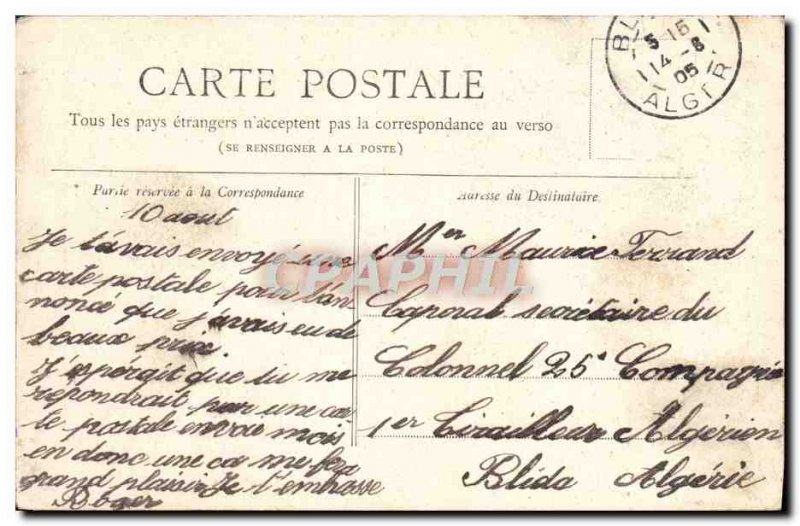 BL
5 15
14 - 8
05
ALGER
CARTE POSTALE
Tous les pays étrangers n'acceptent pas la correspondance au verso
(SE RENSEIGNER A LA POSTE)
Partie réservée à la Correspondance
Adresse du Destinataire
10 aout
Je t'avais envoyé une
carte postale pour t'an
noncé que j'avais eu de
beaux prix
J'espérait que tu me
repondrait par une ca
te postale envoie mois
en donc une ca me fera
grand plaisir Je t'embrasse
Roger
Mer Maurice Ferrand
Caporal secrétaire du
Colonnel 25e Compagnie
1er Tirailleur Algérien
Blida Algérie
CPAPHIL